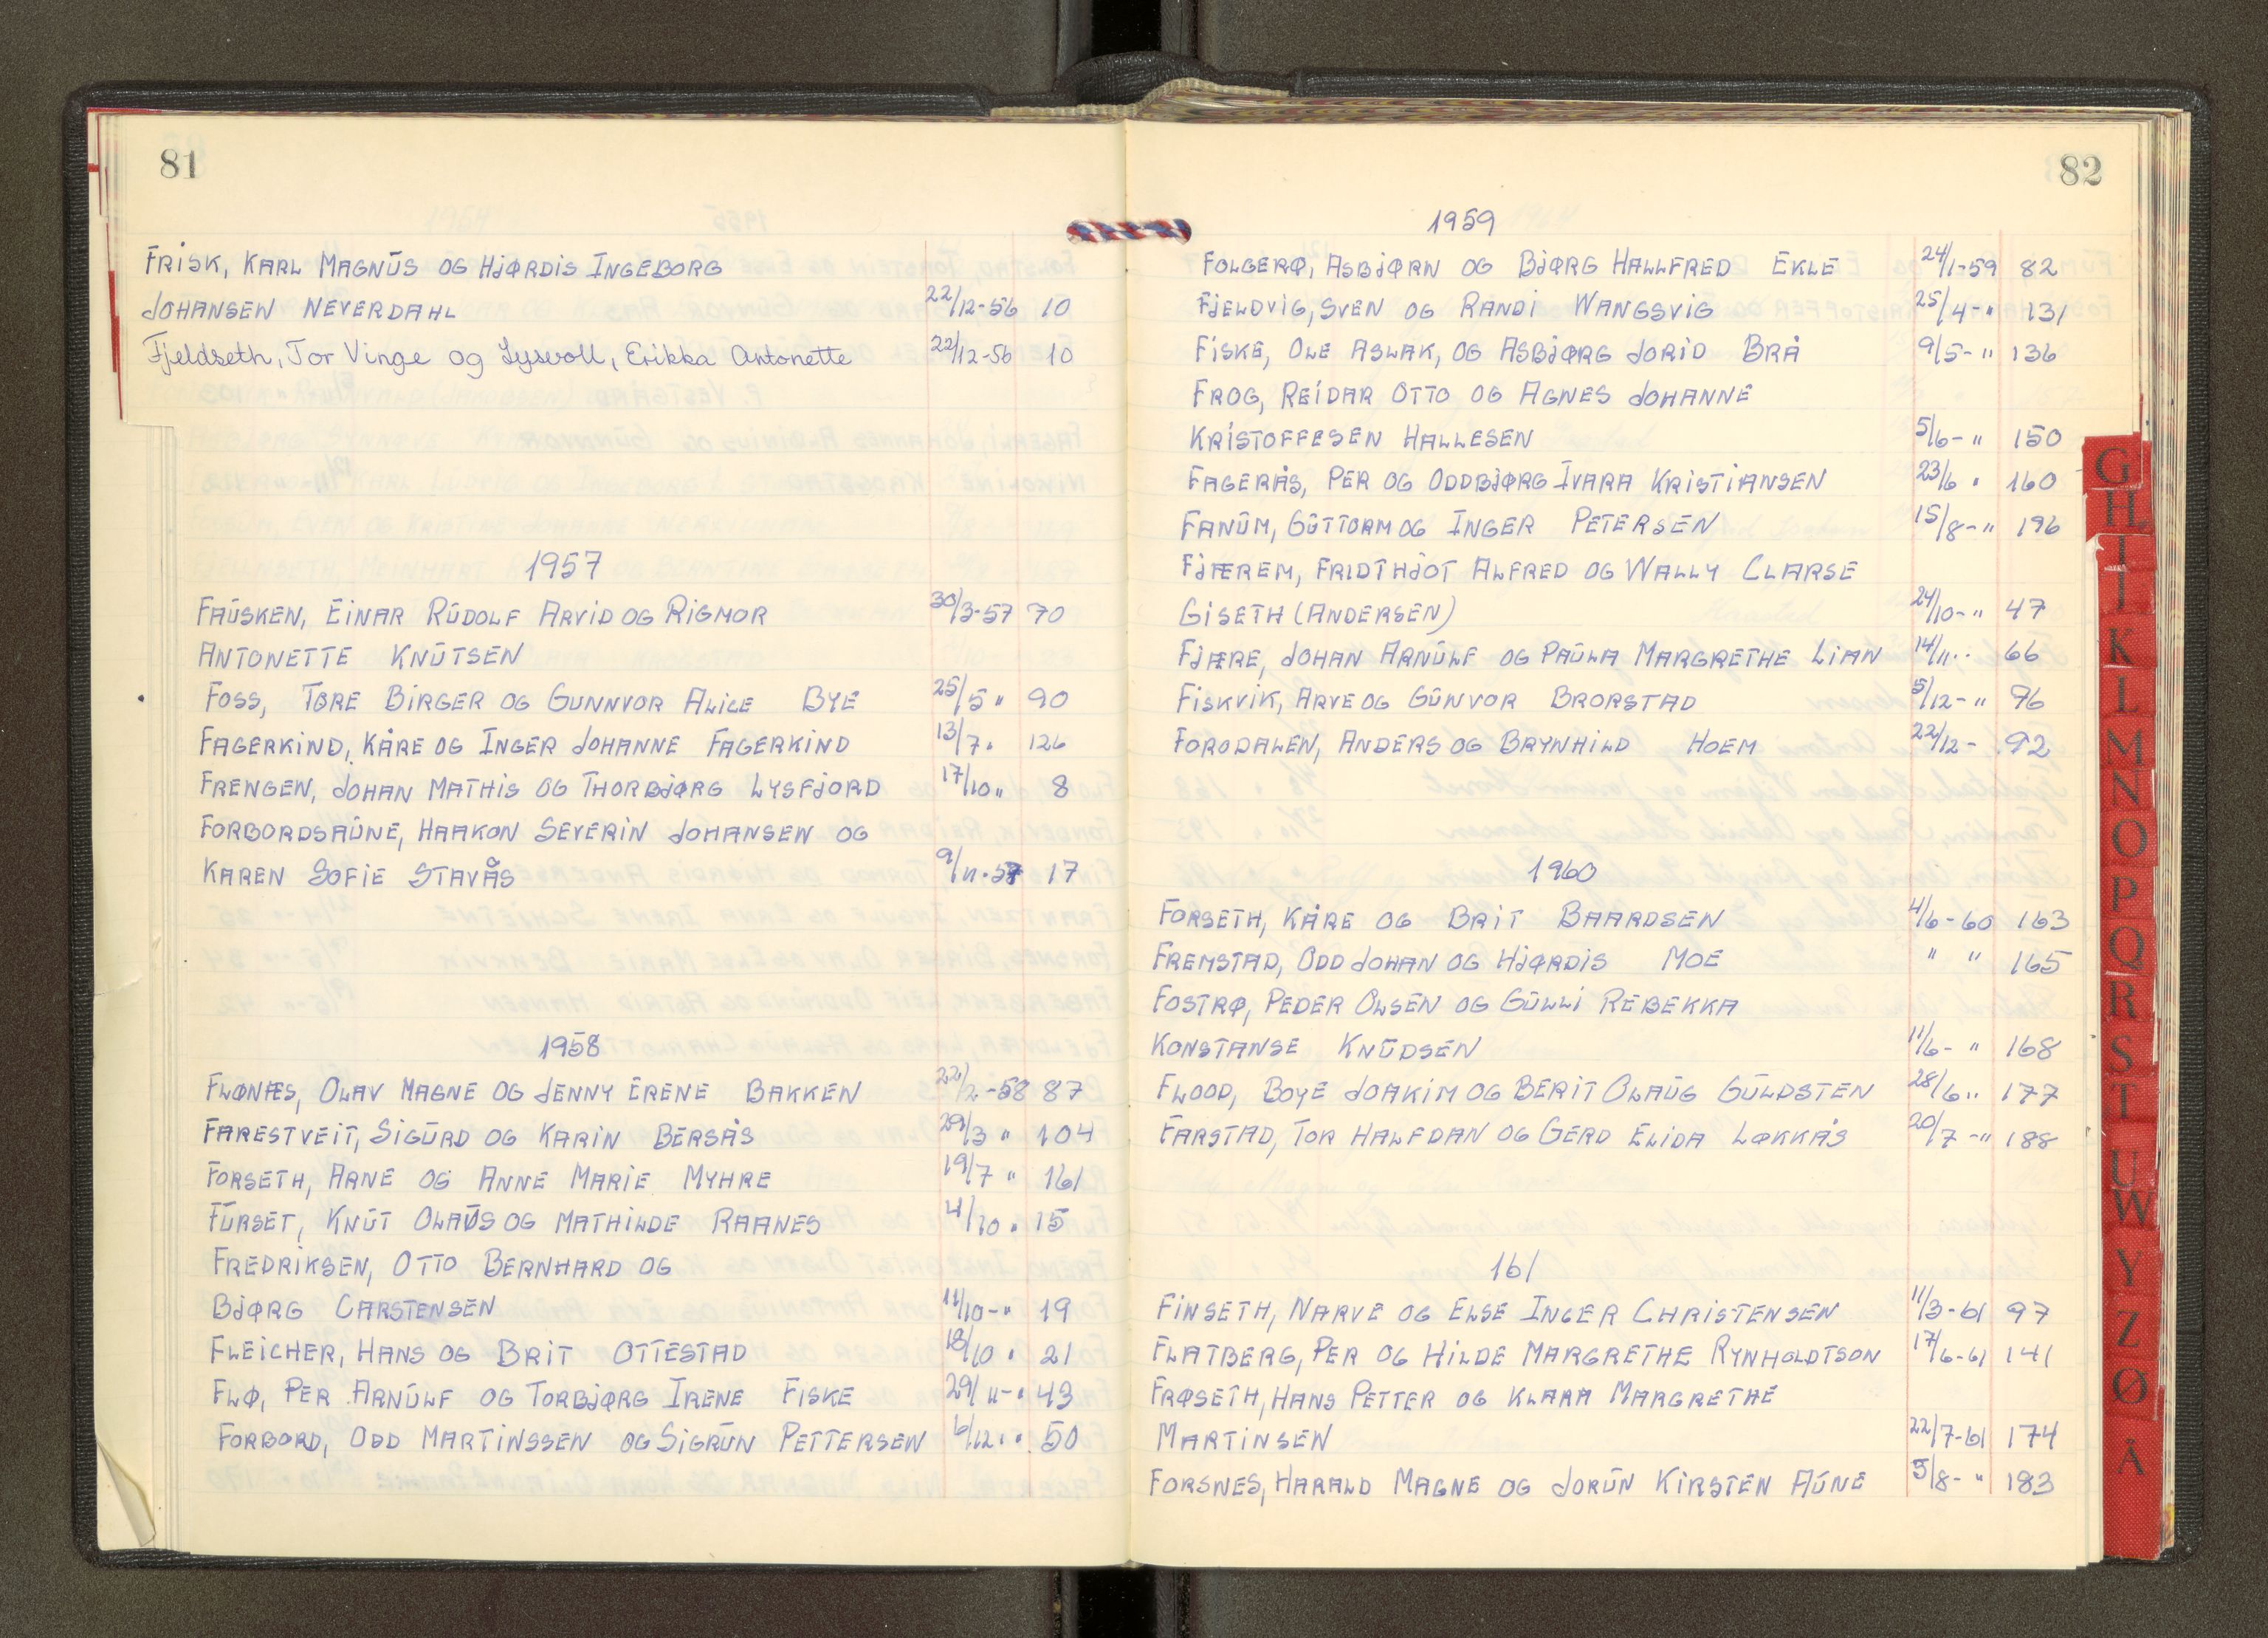 81
FRISK, KARL MAGNUS OG HJØRDIS INGEBORG
JOHANSEN NEVERDAHL 22/12-56 10
Fjeldseth, Tor Vinge og Lysvoll, Erikka Antonette 22/12-56 10
1957
FAUSKEN, EINAR RUDOLF ARVID OG RIGMOR 30/3-57 70
ANTONETTE KNUTSEN
FOSS, TORE BIRGER OG GUNNVOR ALICE BYE 25/5 " 90
FAGERKIND, KÅRE OG INGER JOHANNE FAGERKIND 13/7 " 126
FRENGEN, JOHAN MATHIS OG THORBJØRG LYSFJORD 17/10 " 8
FORBORDSAUNE, HAAKON SEVERIN JOHANSEN OG
KAREN SOFIE STAVÅS 9/11-57 17
1958
FLØNÆS, OLAV MAGNE OG JENNY ERENE BAKKEN 22/2-58 87
FARESTVEIT, SIGURD OG KARIN BERSÅS 29/3 " 104
FORSETH, ARNE OG ANNE MARIE MYHRE 19/7 " 161
FURSET, KNUT OLAUS OG MATHILDE RAANES 4/10 " 15
FREDRIKSEN, OTTO BERNHARD OG
BJØRG CARSTENSEN 11/10-" 19
FLEICHER, HANS OG BRIT OTTESTAD 18/10 " 21
FLØ, PER ARNULF OG TORBJØRG IRENE FISKE 29/11-" 43
FORBORD, ODD MARTINSSEN OG SIGRUN PETTERSEN 6/12 " 50
82
1959
FOLGERØ, ASBJØRN OG BJØRG HALLFRED EKLE 24/1-59 82
FJELDVIG, SVEN OG RANDI WANGSVIG 25/4-" 131
FISKE, OLE ASLAK, OG ASBJØRG JORID BRÅ 9/5-" 136
FROG, REIDAR OTTO OG AGNES JOHANNE
KRISTOFFESEN HALLESEN 5/6-" 150
FAGERÅS, PER OG ODDBJØRG IVARA KRISTIANSEN 23/6 " 160
FANUM, GUTTORM OG INGER PETERSEN 15/8-" 196
FJÆREM, FRIDTHJOT ALFRED OG WALLY CLARSE
GISETH (ANDERSEN) 24/10-" 47
FJÆRE, JOHAN ARNULF OG PAULA MARGRETHE LIAN 14/11-" 66
FISKVIK, ARVE OG GUNVOR BRORSTAD 5/12-" 76
FORODALEN, ANDERS OG BRYNHILD HOEM 22/12- 92
1960
FORSETH, KÅRE OG BRIT BAARDSEN 4/6-60 163
FREMSTAD, ODD JOHAN OG HJØRDIS MOE " " 165
FOSTRØ, PEDER OLSEN OG GULLI REBEKKA
KONSTANSE KNUDSEN 11/6-" 168
FLOOD, BOYE JOAKIM OG BERIT OLAUG GULDSTEN 28/6 " 177
FARSTAD, TOR HALFDAN OG GERD ELIDA LØKKÅS 20/7-" 188
161
FINSETH, NARVE OG ELSE INGER CHRISTENSEN 11/3-61 97
FLATBERG, PER OG HILDE MARGRETHE RYNHOLDTSON 17/6-61 141
FRØSETH, HANS PETTER OG KLARA MARGRETHE
MARTINSEN 22/7-61 174
FORSNES, HARALD MAGNE OG JORUN KIRSTEN AUNE 5/8-" 183
G
H
I
J
K
L
M
N
O
P
Q
R
S
T
U
W
Y
Z
Ø
Å